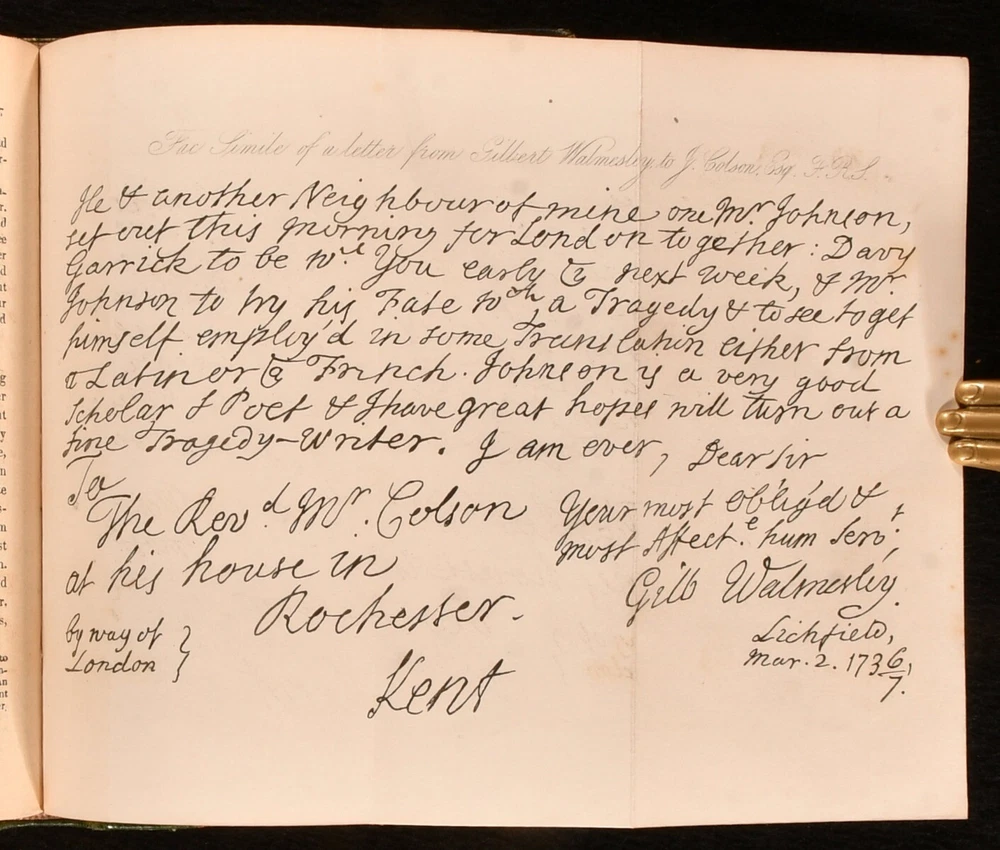 Fac Simile of a letter from Gilbert Walmesley to J. Colson, Esq. F.R.S.
He & another Neighbour of mine one Mr Johnson,
set out this morning for London together: Davy
Garrick to be wth You early next week, & Mr.
Johnson to try his Fate wth a Tragedy & to see to get
himself employ'd in some Translation either from
Latin or French. Johnson is a very good
Scholar & Poet & I have great hopes will turn out a
fine Tragedy-Writer. I am ever, Dear Sir
To
The Revd Mr. Colson
at his house in
Rochester.
Kent
by way of
London
Your most oblig'd &
most Affect.e hum Servt;
Gilb Walmesley.
Lichfield,
Mar. 2. 1736/7.